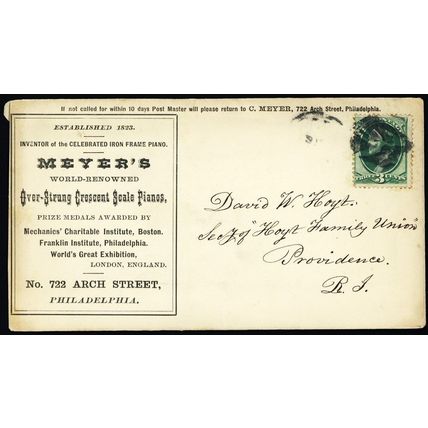 If not called for within 10 days Post Master will please return to C. MEYER, 722 Arch Street, Philadelphia.
ESTABLISHED 1823.
INVENTOR of the CELEBRATED IRON FRAME PIANO.
MEYER'S
WORLD-RENOWNED
Over-Strung Crescent Scale Pianos,
PRIZE MEDALS AWARDED BY
Mechanics' Charitable Institute, Boston.
Franklin Institute, Philadelphia.
World's Great Exhibition,
LONDON, ENGLAND.
No. 722 ARCH STREET,
PHILADELPHIA.
3
CENTS
David W. Hoyt.
Sec'y of "Hoyt Family Union"
Providence.
R. I.